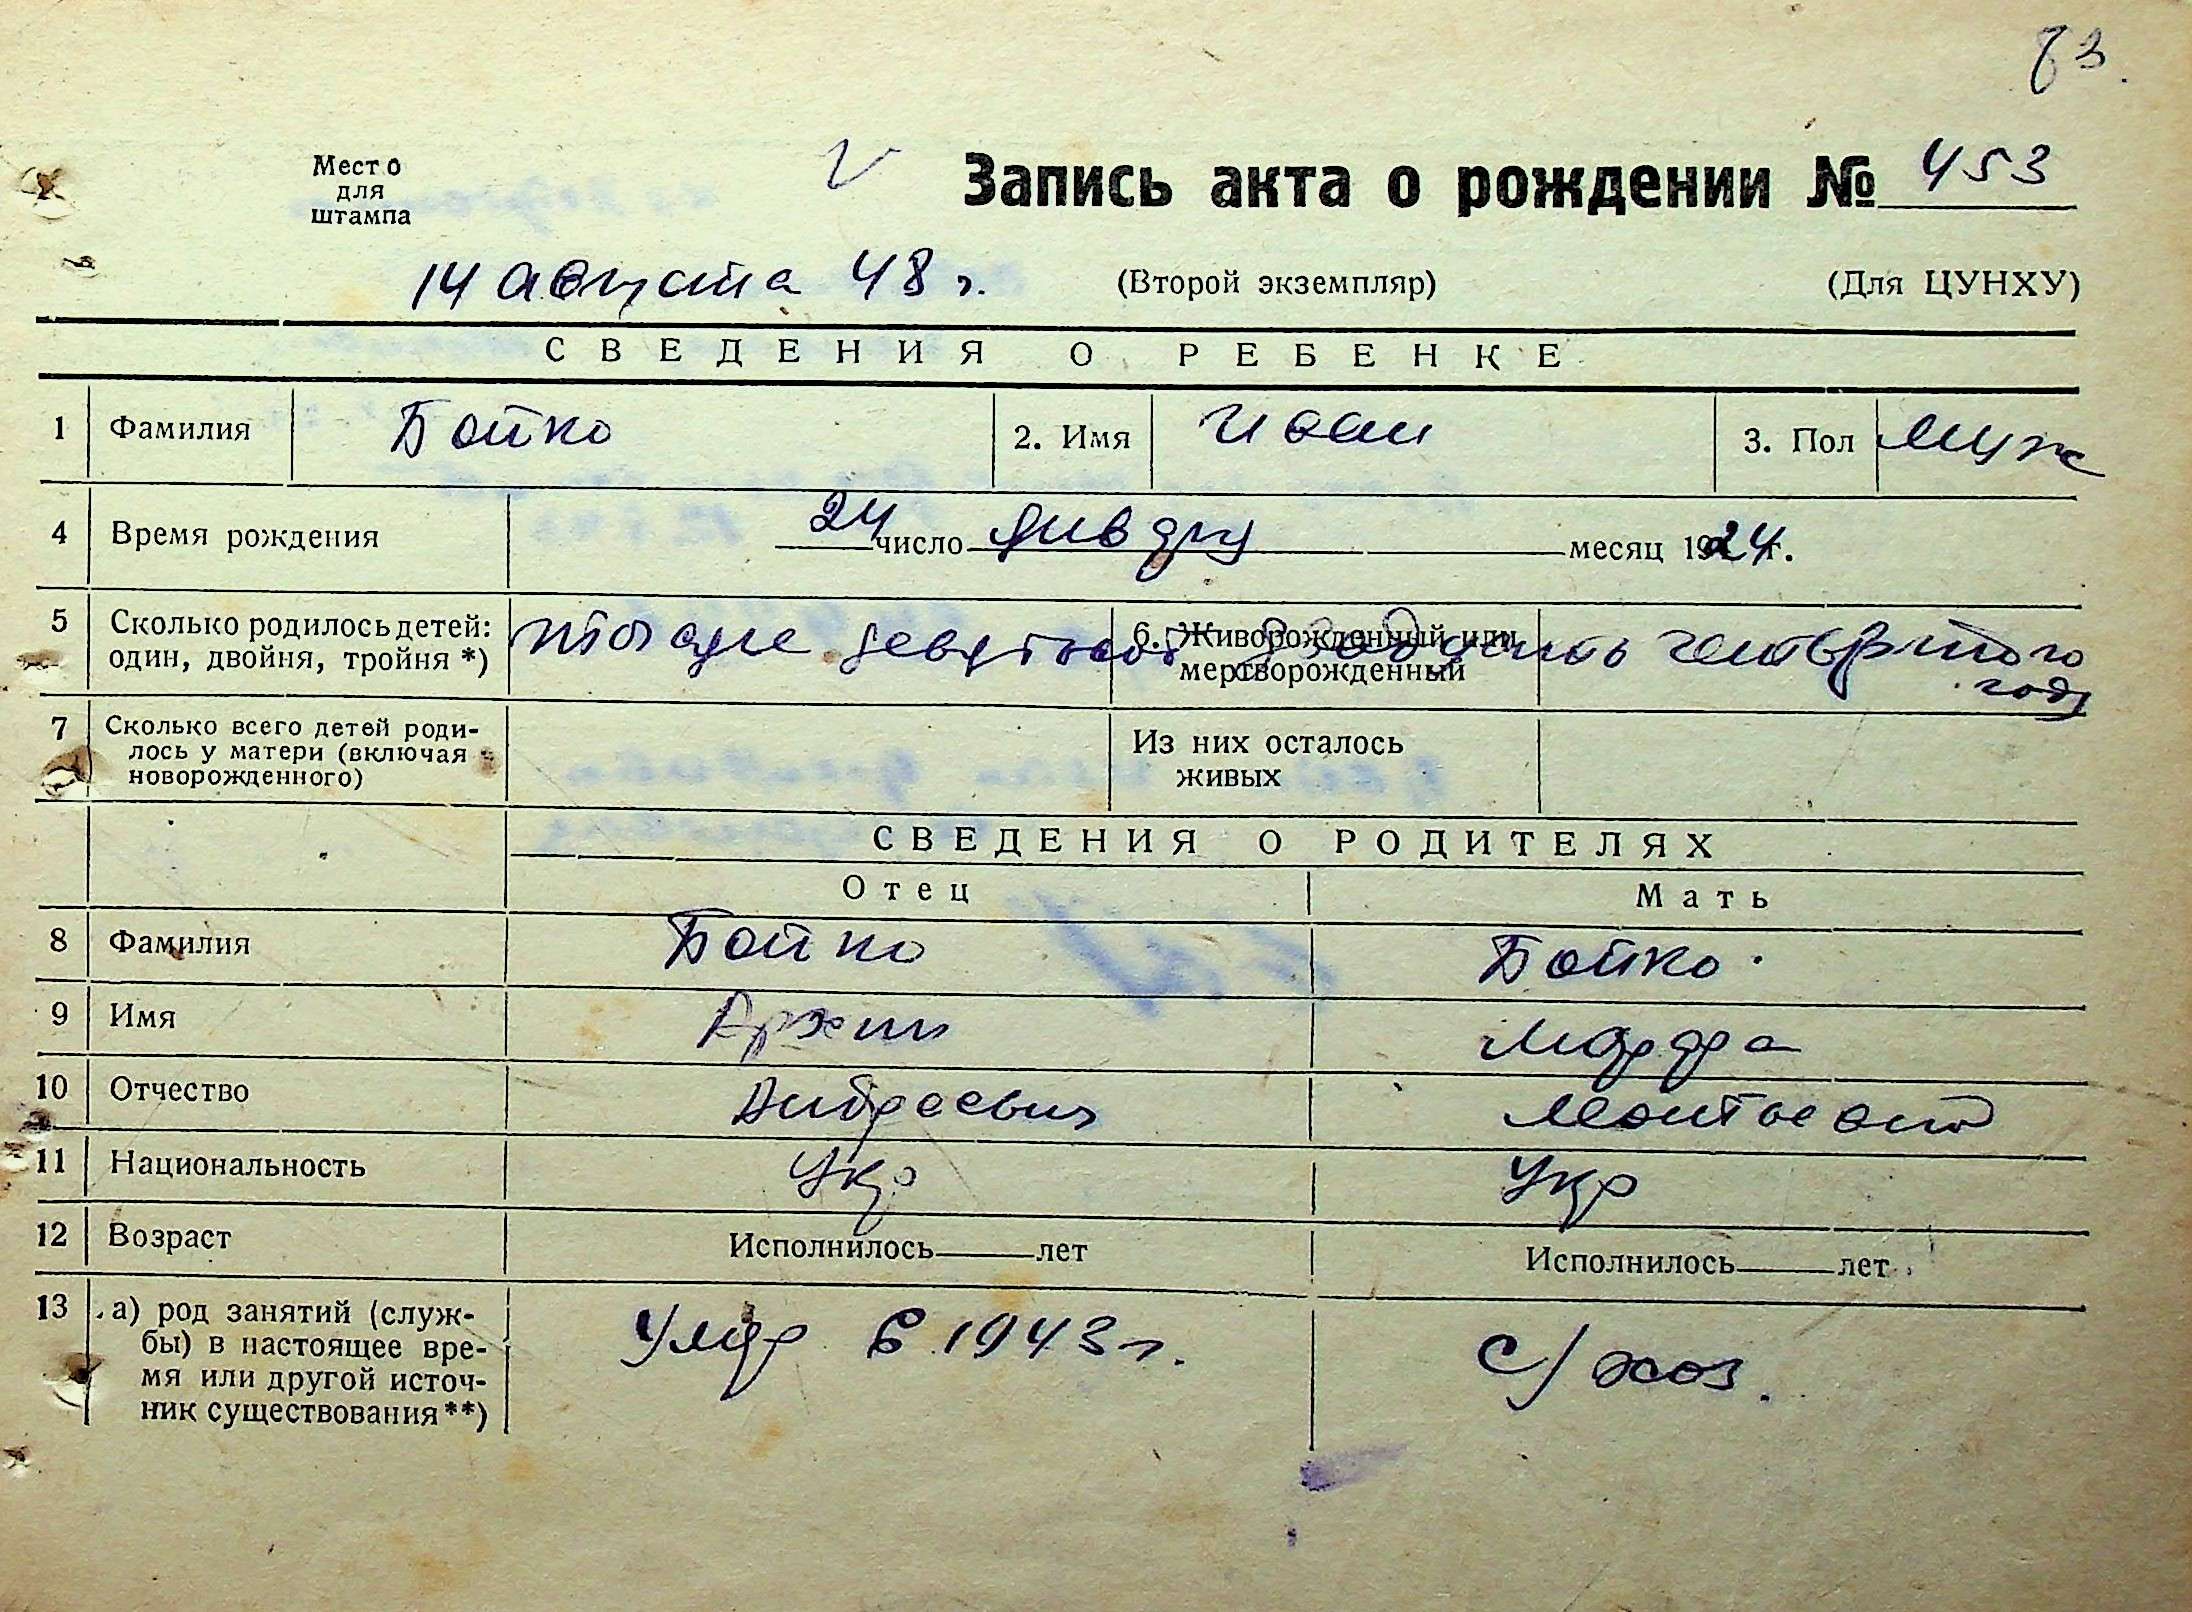 83.
Место
для
штампа
V Запись акта о рождении № 453
14 августа 48 г. (Второй экземпляр) (Для ЦУНХУ)
СВЕДЕНИЯ О РЕБЕНКЕ
1 Фамилия Бойко 2. Имя Иван 3. Пол муж
4 Время рождения 24 число января месяц 1924 г.
5 Сколько родилось детей: один, двойня, тройня *) тысяче девятьсот 6. Живорожденный или мертворожденный двадцать четвертого году
7 Сколько всего детей родилось у матери (включая новорожденного) Из них осталось живых
СВЕДЕНИЯ О РОДИТЕЛЯХ
Отец Мать
8 Фамилия Бойко Бойко.
9 Имя Архип Марфа
10 Отчество Андреевич Леонтьевна
11 Национальность Укр Укр
12 Возраст Исполнилось лет Исполнилось лет
13 а) род занятий (служ-
бы) в настоящее вре-
мя или другой источ-
ник существования **) Умер в 1943 г. с/хоз.